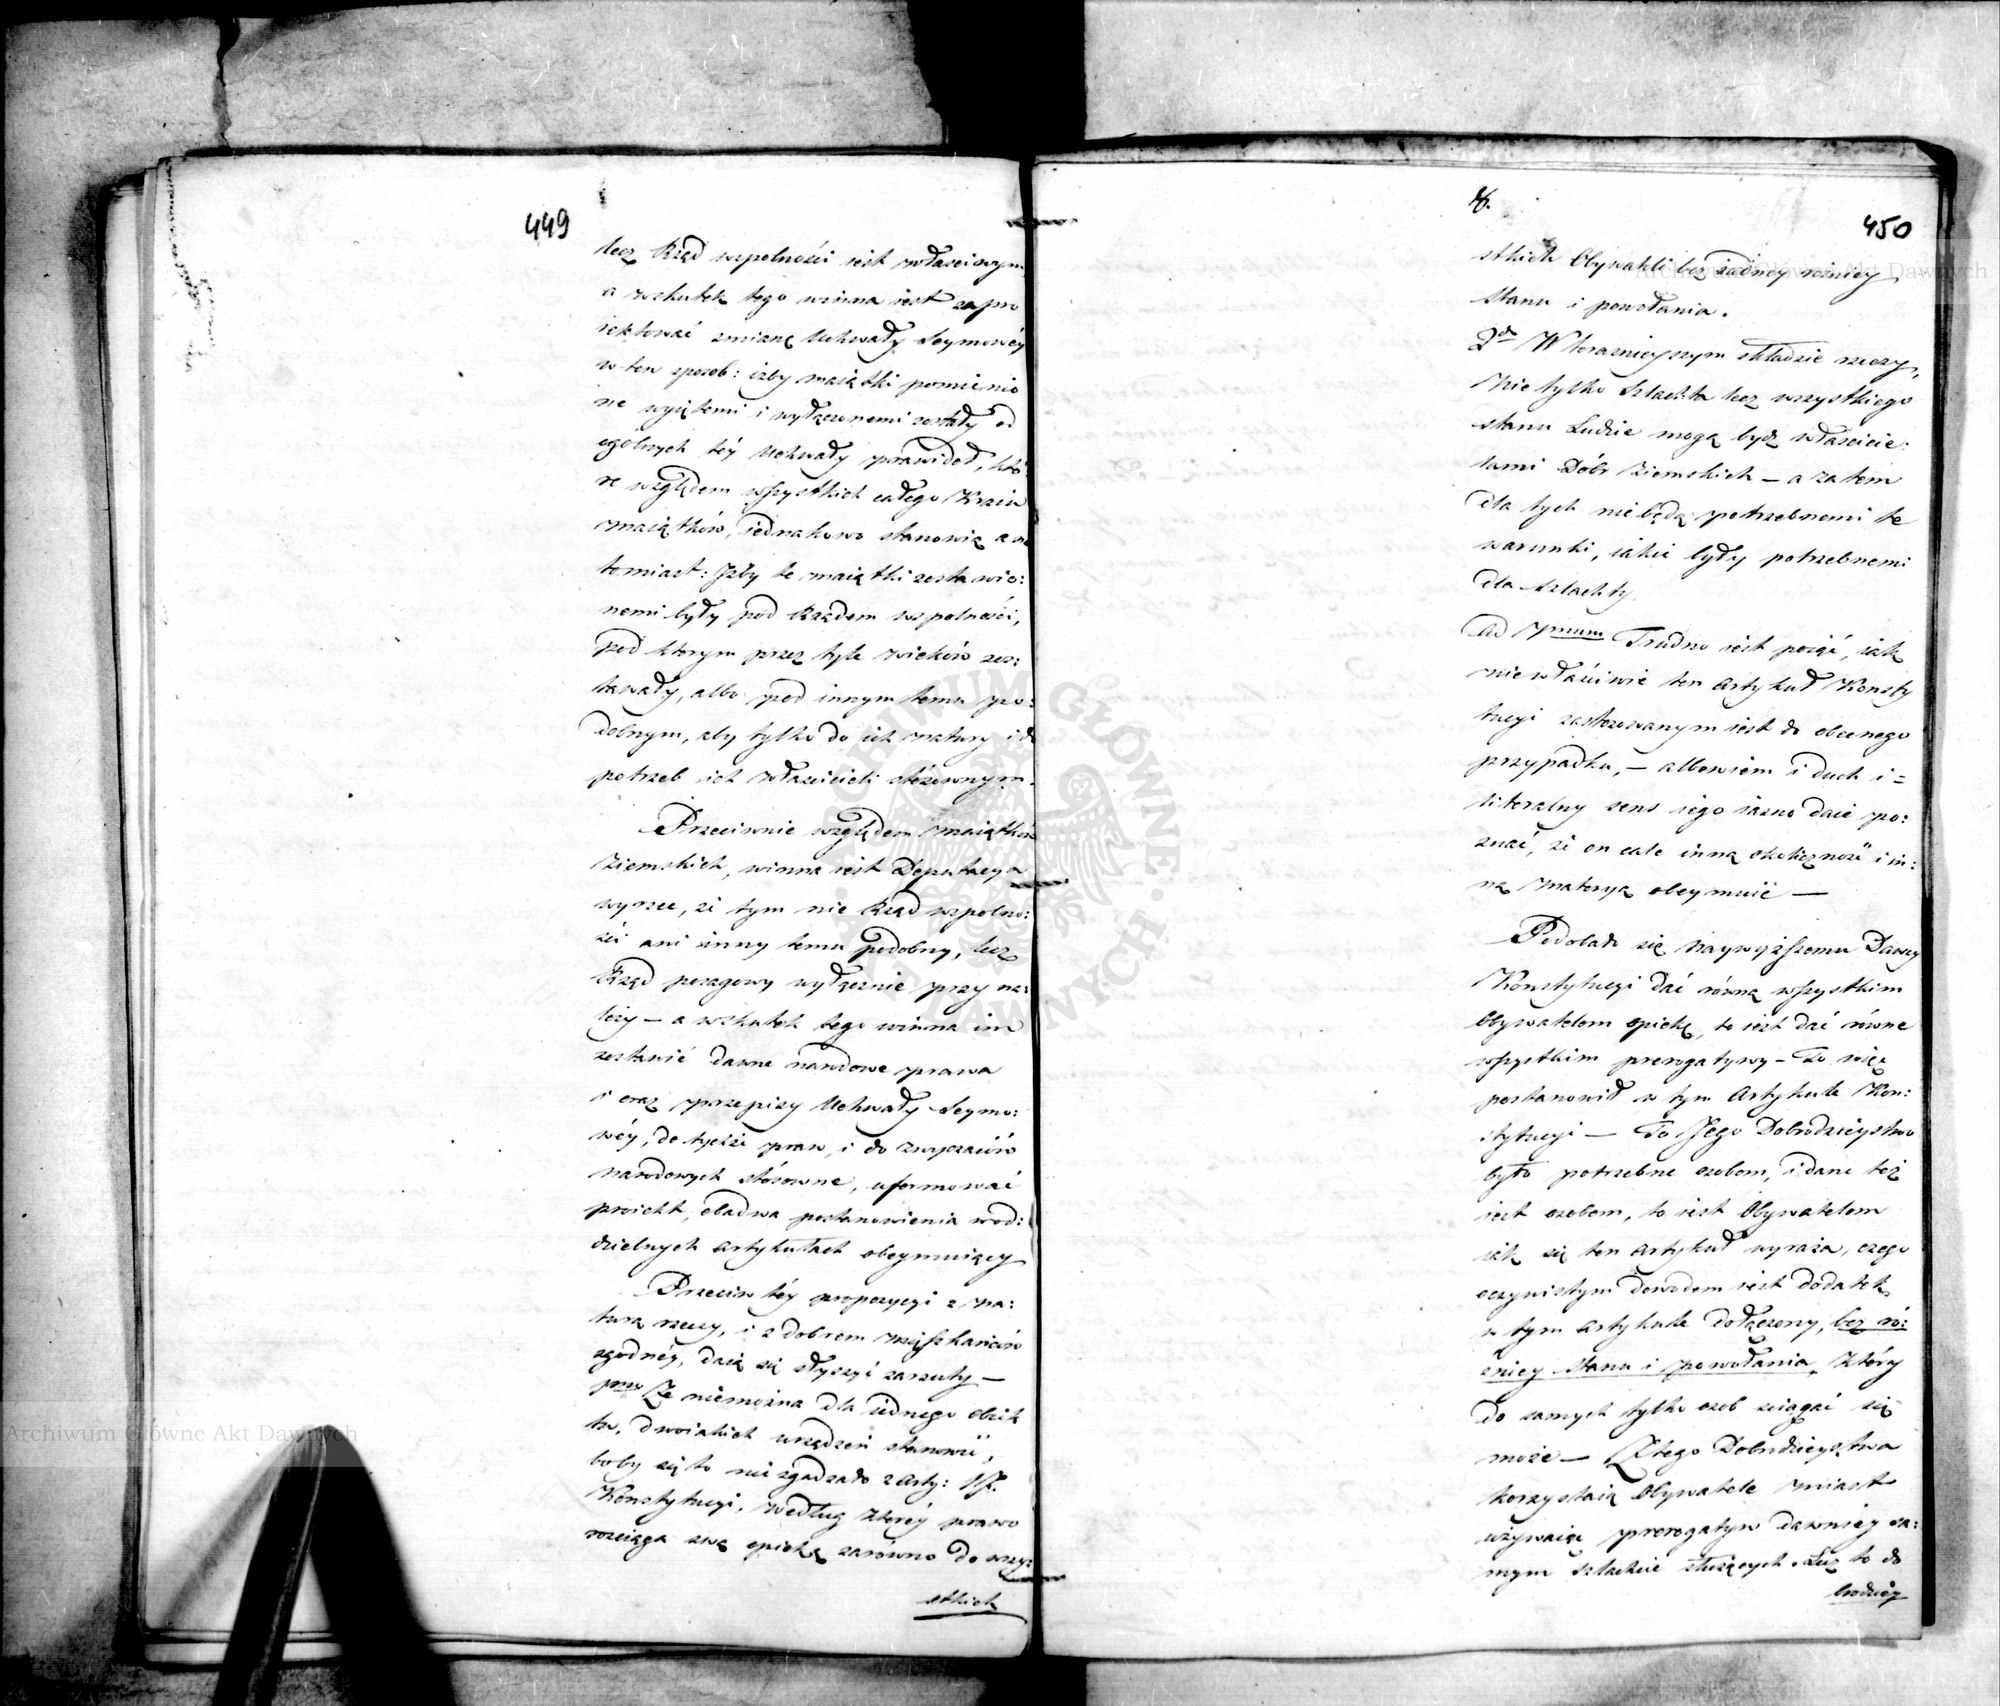 449
lecz Rząd wspolności iest właściwym
a wskutek tego winna iest zapro
iektować zmianę Uchwały Seymowéy
w ten sposob: iżby maiątki pomienio
ne wyiętemi i wyłączonemi zostały od
ogólnych téy Uchwały prawideł, któ:
re względem wszystkich całego Kraiu
maiątków, iednakowo stanowią a na
tomiast: Jżby te maiątki zostawio:
nemi były pod Rządem wspolności,
pod ktorym przez tyle wieków zos:
tawały, albo pod innym temu po:
dobnym, aby tylko do ich natury i do
potrzeb ich właścicieli stósownym.
Przeciwnie względem maiątków
Ziemskich, winna iest Deputacya
wyrzec, że tym nie Rząd wspolno:
ści ani inny temu podobny, lecz
Rząd posagowy wyłącznie przyna:
leży — a wskutek tego winna im
zostawić dawne narodowe prawa
i oraz przepisy Uchwały Seymo:
wéy, do tychże praw, i do zwyczaiów
narodowych stósowne, uformować
proiekt, obadwa postanowienia w od:
dzielnych artykułach obeymuiący
Przeciw téy propozycyi z na:
turą rzeczy, i z dobrem mieszkańców
zgodnéy, daią się słyszyć zarzuty —
pmo Że niemożna dla iednego obiek
tu, dwoiakich urządzeń stanowić,
boby się to nie zgadzało z Arty: 17.
Konstytucyi, według któréy prawo
rozciąga swą opiekę zarówno do wszy:
stkich
8.
450
stkich Obywateli bez żadney różnicy
stanu i powołania.
2do W teraznieyszym składzie rzeczy,
nie tylko Szlachta lecz wszystkiego
stanu Ludzie mogą bydź właścicie:
lami Dóbr ziemskich — a zatem
dla tych nie będą potrzebnemi te
warunki, iakie były potrzebnemi
dla szlachty.
Ad primum Trudno iest poiąć, iak
niewłaściwie ten artykuł Konsty
tucyi zastosowanym iest do obecnego
przypadku, — albowiem i duch i =
literalny sens iego iasno daie po:
znać, że on całe inną okoliczność i in:
ną materyą obeymuie —
Podobało się Naywyższemu Dawcy
Konstytucyi dać równą wszystkim
Obywatelom opiekę, to iest dać równe
wszystkim prerogatywy — To więc
postanowił w tym Artykule Kon:
stytucyi — To Jego Dobrodzieystwo
było potrzebne osobom, i dane też
iest osobom, to iest Obywatelom
iak się ten artykuł wyraża, czego
oczywistym dowodem iest dodatek
w tym artykule dołączony, bez ró:
żnicy stanu i powołania, który
do samych tylko osob sciągać się
może — Z tego Dobrodzieystwa
korzystaią Obywatele miast
używaiąc prerogatyw dawniey sa:
mym szlachcie służących. Lecz to do
brodziey
Archiwum Główne Akt Dawnych
Archiwum Główne Akt Dawnych
ARCHIWUM GŁÓWNE AKT DAWNYCH